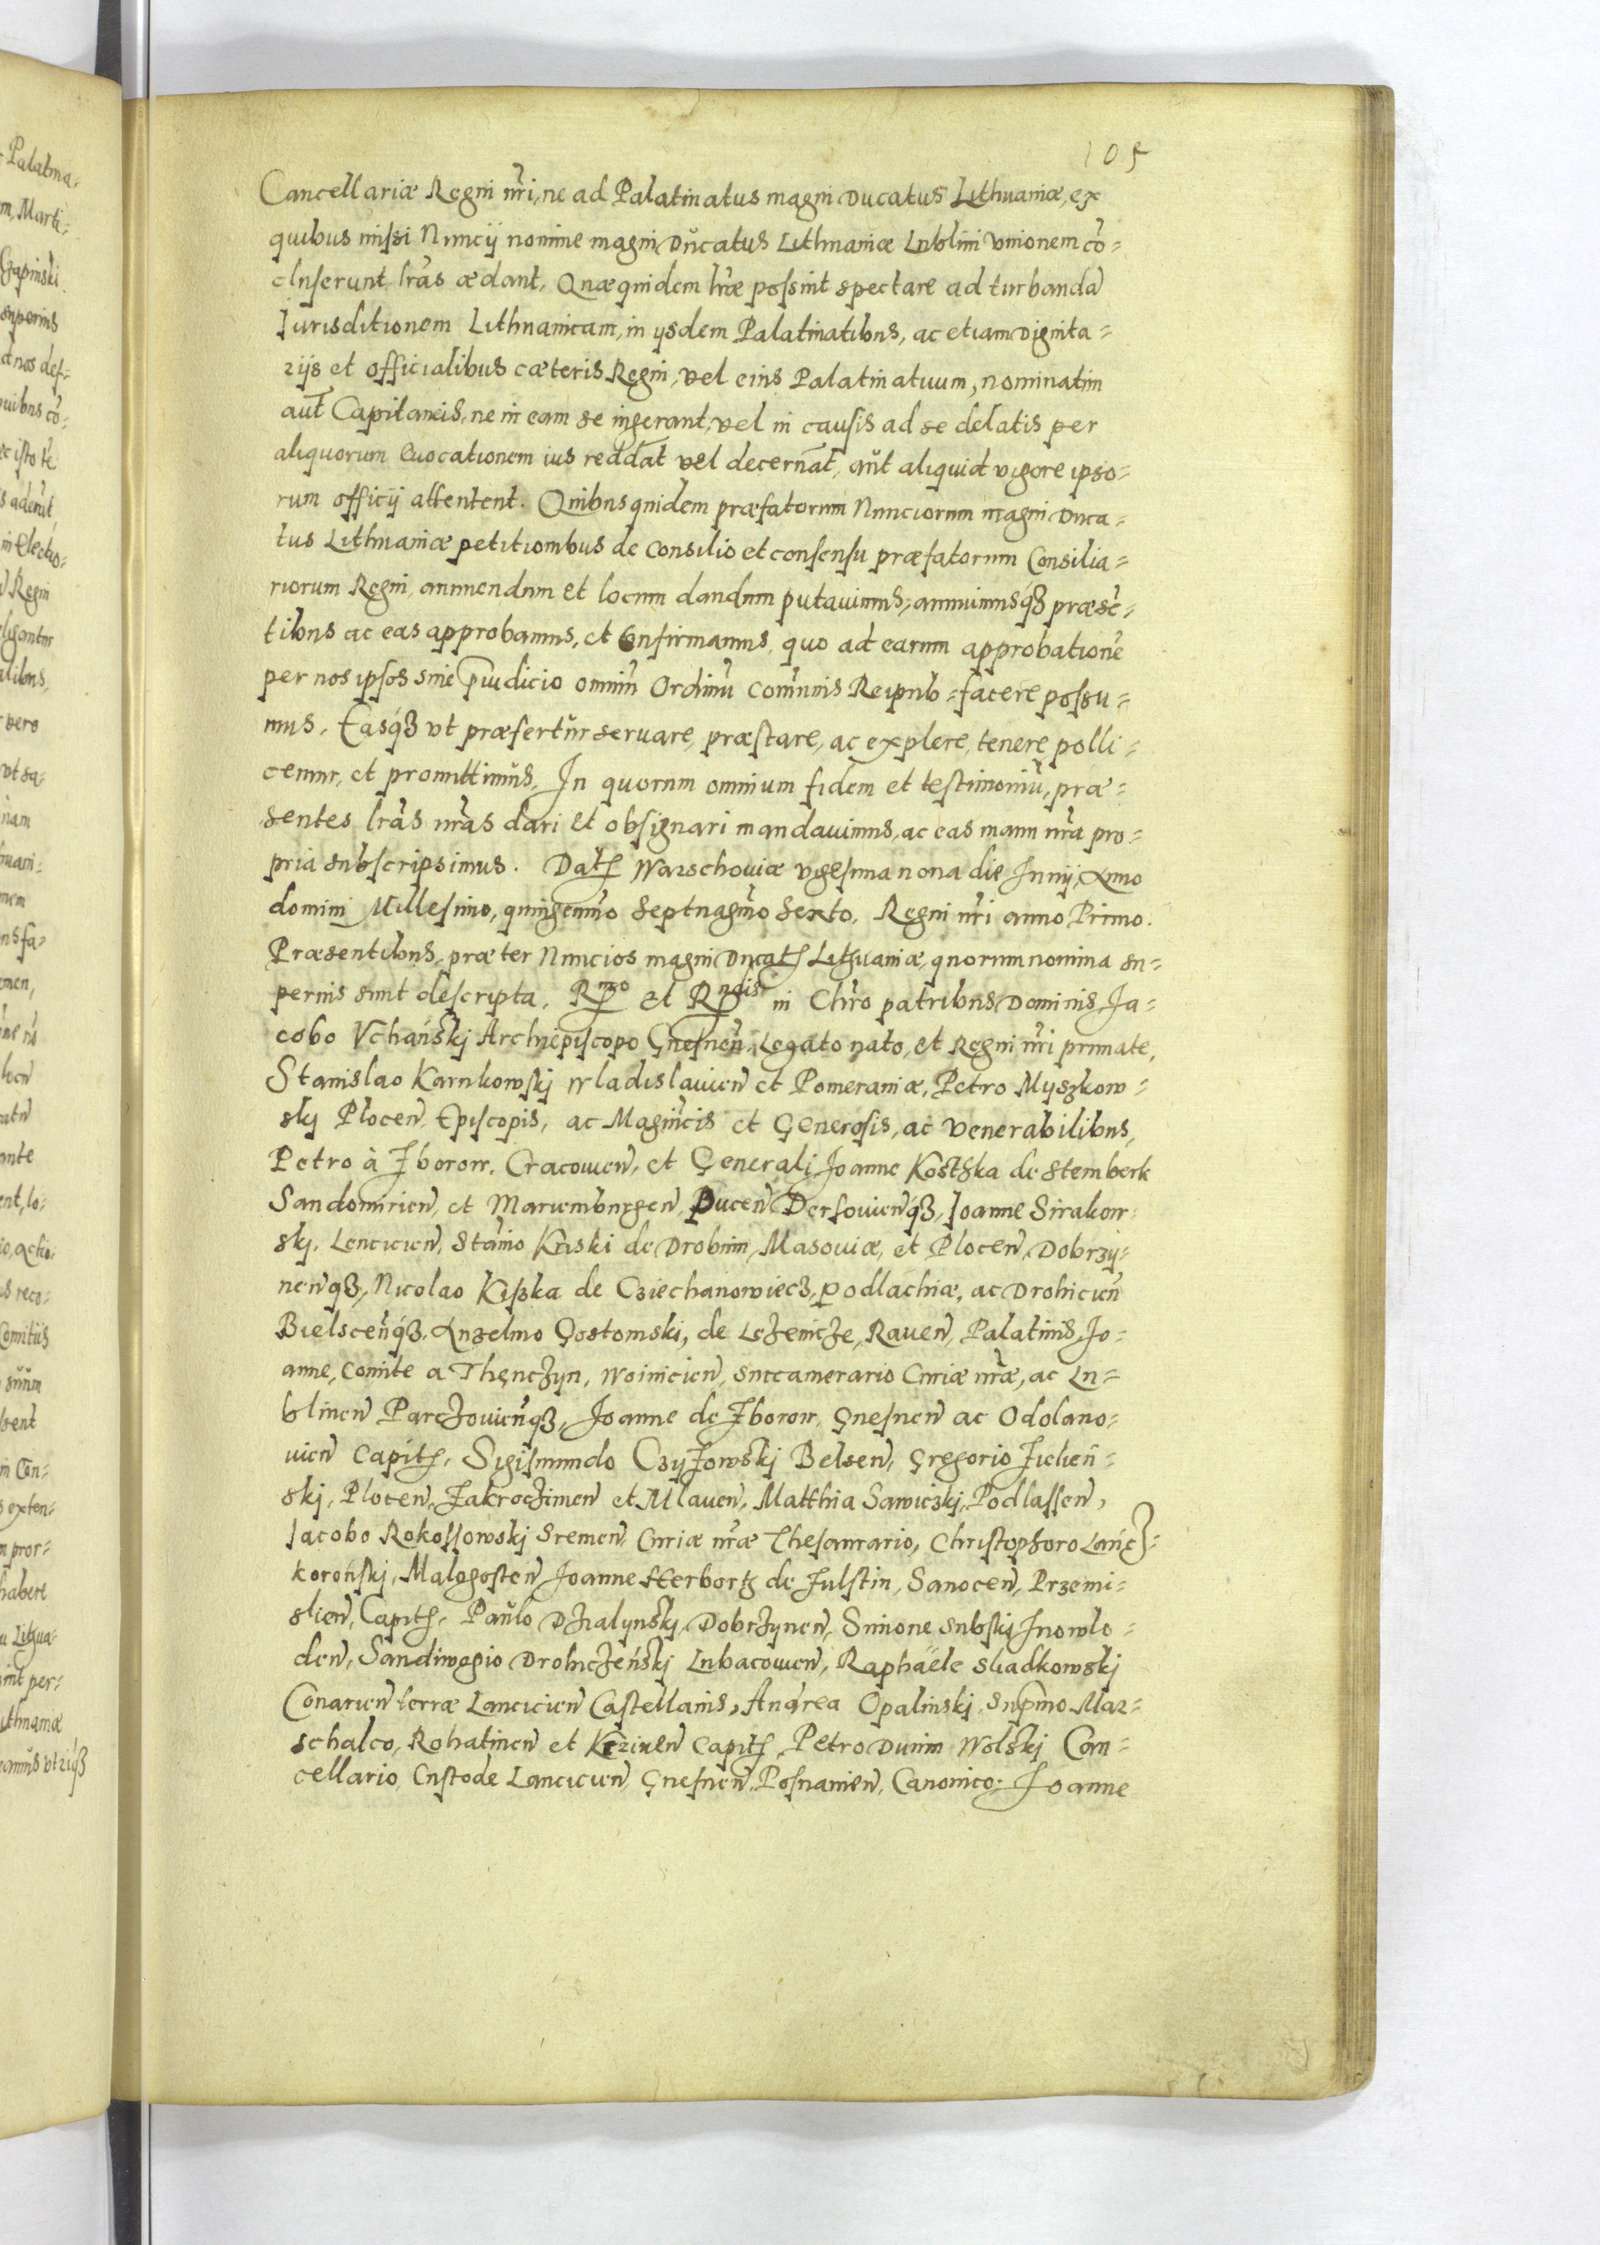 105
Cancellariæ Regni nr̃i, ne ad Palatinatus magni Ducatus Lithuaniæ, ex
quibus missi Nuncij nomine magni Ducatus Lithuaniæ Lublini vnionem cõ-
cluserunt lr̃as ædant, Quæquidem lr̃æ possint spectare ad turbandã
Iurisditionem Lithuanicam, in ijsdem Palatinatibus, ac etiam Dignita-
rijs et officialibus cæteris Regni, vel eius Palatinatuum, nominatim
aut̃ Capitaneis, ne in eam se ingerant, vel in causis ad se delatis per
aliquorum Euocationem ius reddãt vel decernãt, aut aliquid vigore ipso-
rum officij attentent. Quibusquidem præfatorum Nunciorum magni Duca-
tus Lithuaniæ petitionibus de consilio et consensu præfatorum Consilia-
riorum Regni, annuendum et locum dandum putauimus, annuimusq́ꝫ præsẽ-
tibus ac eas approbamus, et Confirmamus, quo ad earum approbationẽ
per nos ipsos sine p̃iudicio omniũ Ordinũ comunis Reipub-facere possu-
mus, Easq́ꝫ vt præfertur seruare, præstare, ac explere, tenere polli-
cemur, et promittimus, In quorum omnium fidem et testimoniũ, præ-
sentes lr̃as nr̃as dari et obsignari mandauimus, ac eas manu nr̃a pro-
pria subscripsimus. Dat̃ Warschouiæ vigesima nona die Iunij, Anno
domini Millesimo, quingenmo Septuagmo Sexto. Regni nr̃i anno Primo.
Præsentibus, præter Nuncios magni Ducatꝰ Lithuaniæ, quorum nomina su-
perius sunt descripta. Rmo et Rndis in Chr̃o patribus Dominis, Ja-
cobo Vchański Archiepiscopo Gnesneñ, Legato nato, et Regni nr̃i primate,
Stanislao Karnkowskj Wladislauieñ et Pomeraniæ, Petro Myszkow-
skj Ploceñ Episcopis, ac Magncis et Generosis, ac Venerabilibus,
Petro à Zborow, Cracouieñ, et Generalj Joanne Kosthka de Stemberk
Sandomirieñ, et Mariemburgeñ, Puceñ Dersouieñq́ꝫ, Joanne Sirakow-
skj, Lencicieñ, Stanio Kriski de Drobnin, Masouiæ, et Ploceñ, Dobrzy-
neñqꝫ, Nicolao Kiszka de Cziechanowiecz, Podlachiæ, ac Drohicieñ
Bielsceñq́ꝫ, Anzelmo Gostomski, de Lezenicze, Raueñ, Palatinis, Jo-
anne, Comite a Thenczyn, Woinicieñ, Succamerario Curiæ nr̃æ, ac Lu-
blineñ Parczouieñqꝫ, Joanne de Zborow, Gnesneñ ac Odolano-
uieñ Capitꝭ, Sigismundo Czyzowskj Belseñ, Gregorio Zielień-
skj, Ploceñ, Zakroczimeñ et Mlaueñ, Matthia Sawiczkj, Podlasseñ,
Iacobo Rokossowskj Sremeñ, Curiæ nr̃æ Thesaurario, Christophoro Lancz-
korońskj, Malogosteñ Joanne Herbortz de Fulstin, Sanoceñ, Przemi-
slieñ, Capitꝭ, Paulo Dzialynskj, Dobrzyneñ, Simone Subskj Inowlo-
deñ, Sandiwogio Drohiczeńskj Lubacouieñ, Raphäele Sladkowskj
Conarieñ terræ Lancicieñ Castellanis, Andrea Opalinskj, Sup̃mo Mar-
schalco, Rohatineñ et Krziueñ Capitꝭ, Petro Dunin Wolskj Can-
cellario, Custode Lancicieñ, Gnesneñ, Posnanieñ, Canonico, Joanne